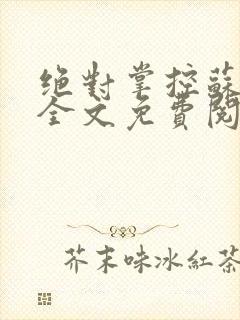 絕對掌控蘇
全文免費閱
芥末味冰紅茶